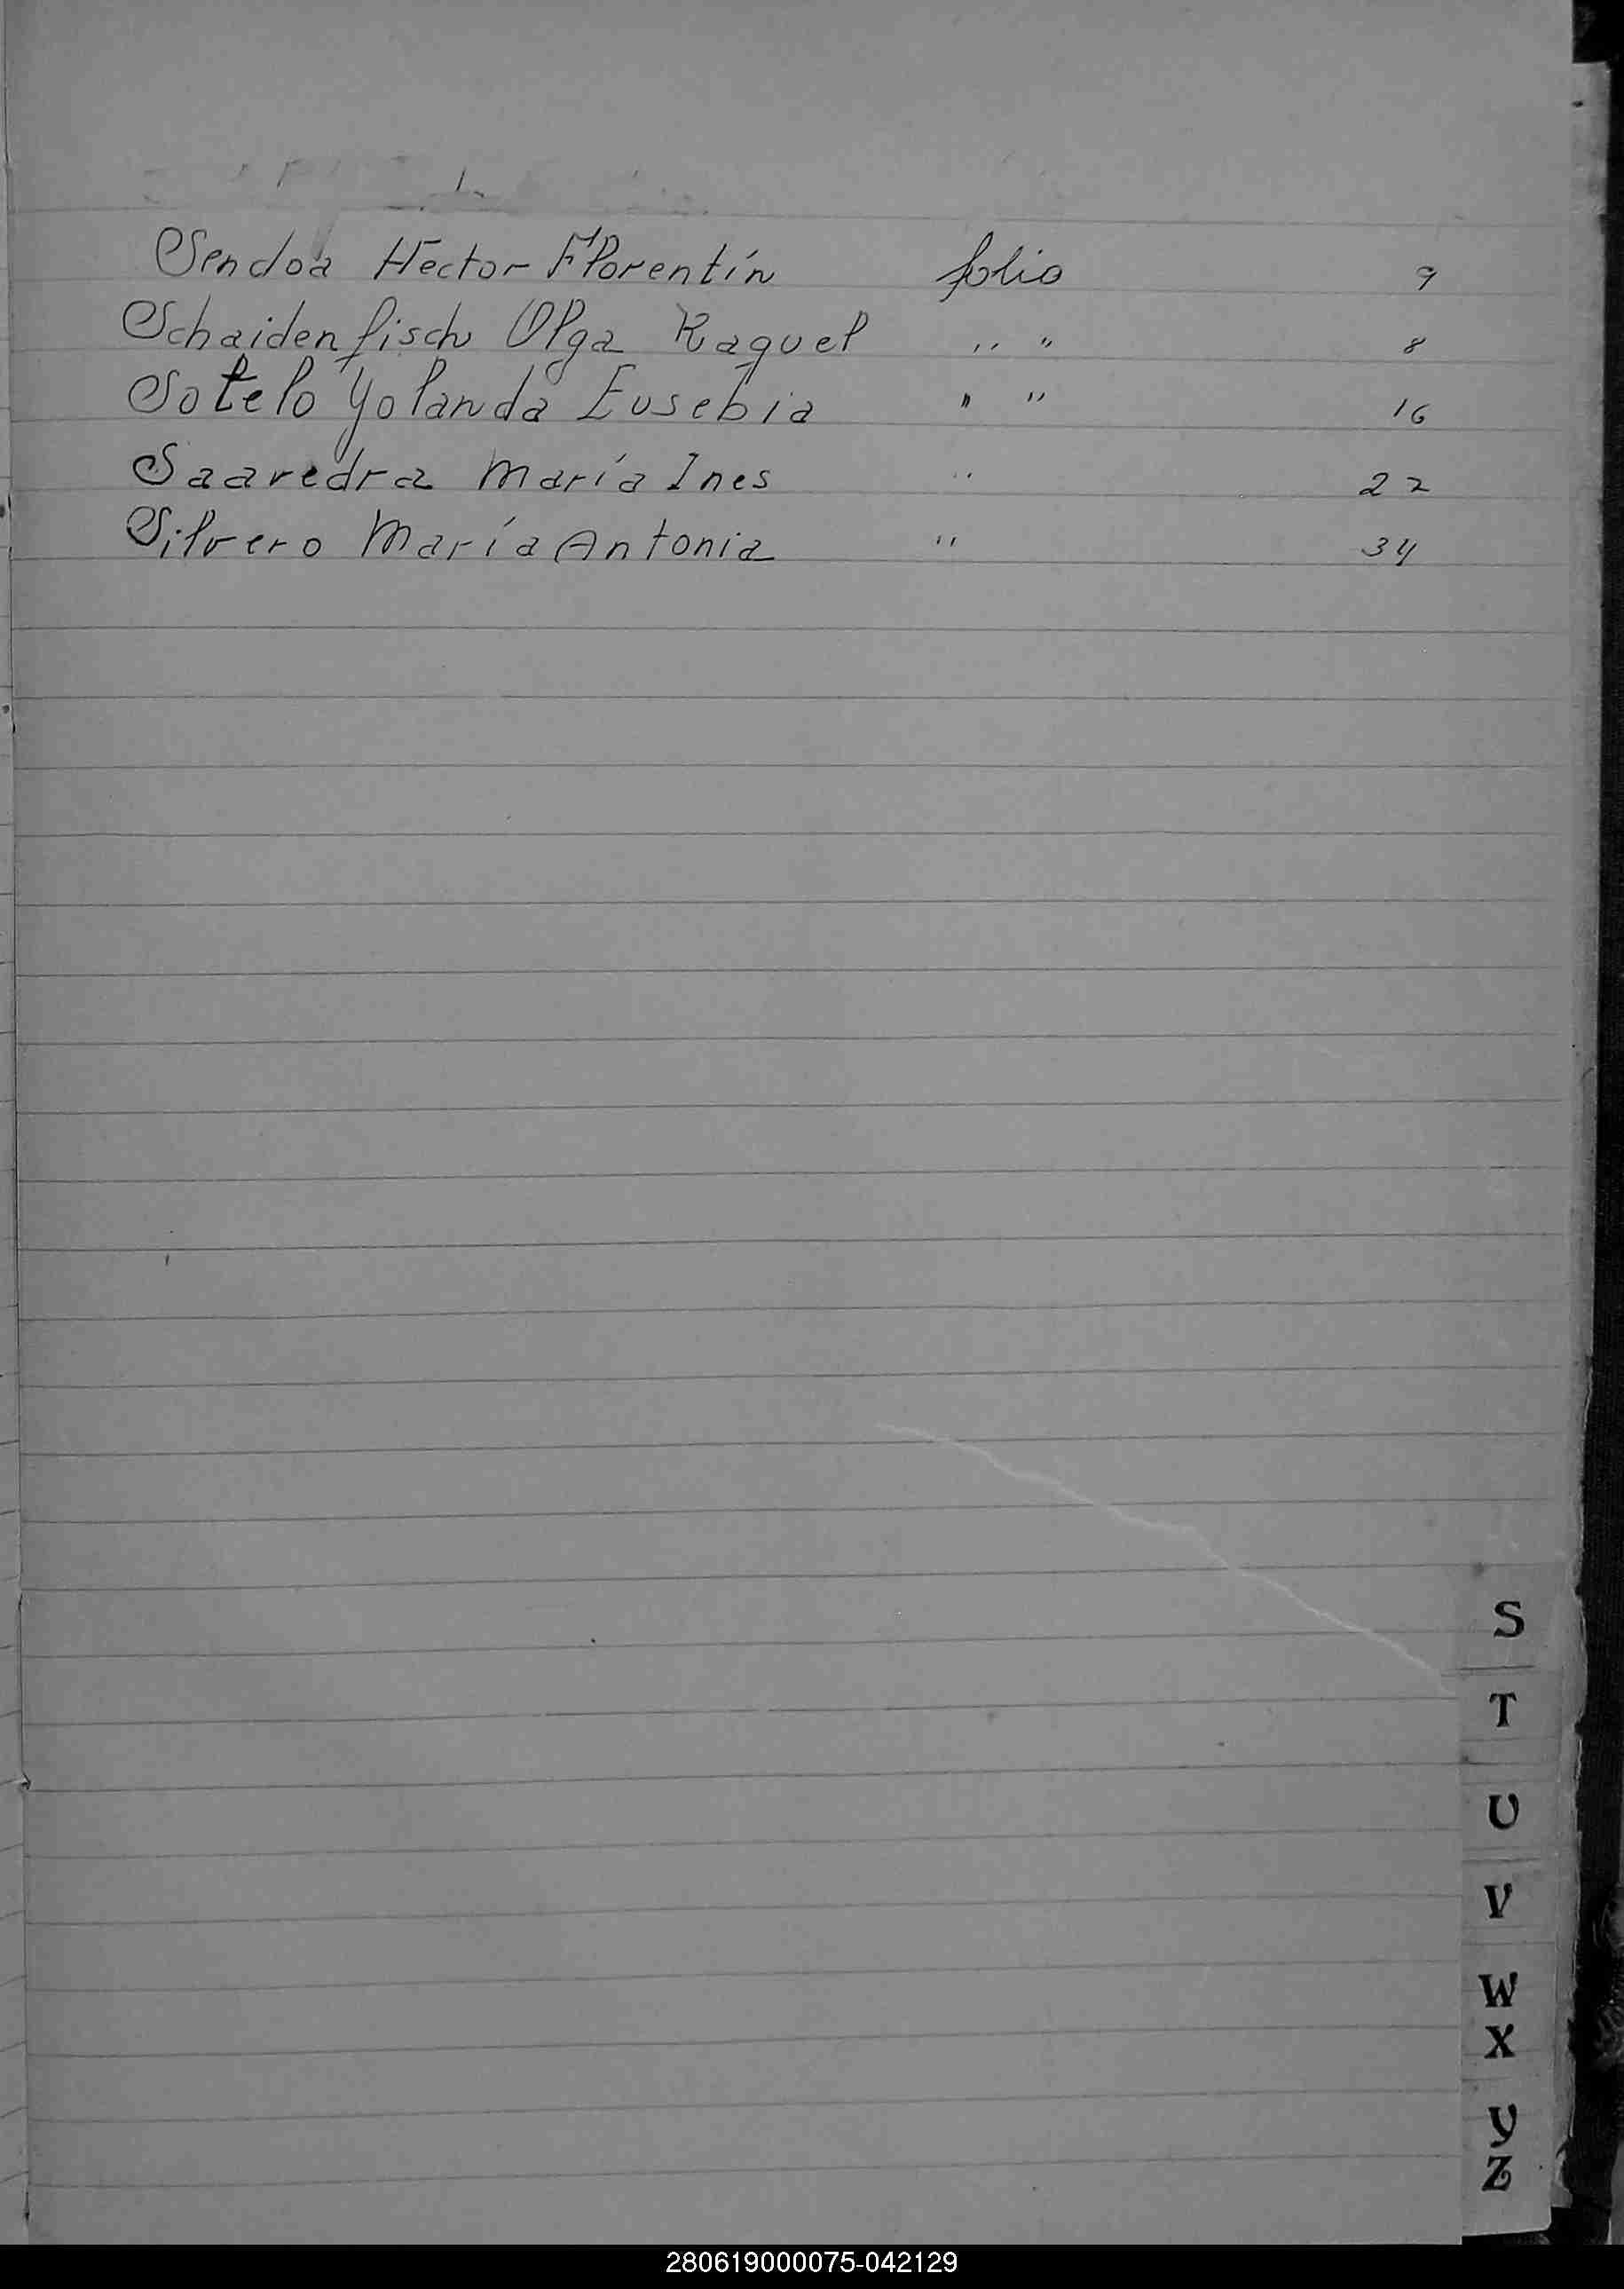 Sendoa Hector Florentín folio 9
Schaidenfisch Olga Raquel " " 8
Sotelo Yolanda Eusebia " " 16
Saavedra María Ines " 22
Silvero María Antonia " 34
S
T
U
V
W
X
Y
Z
280619000075-042129